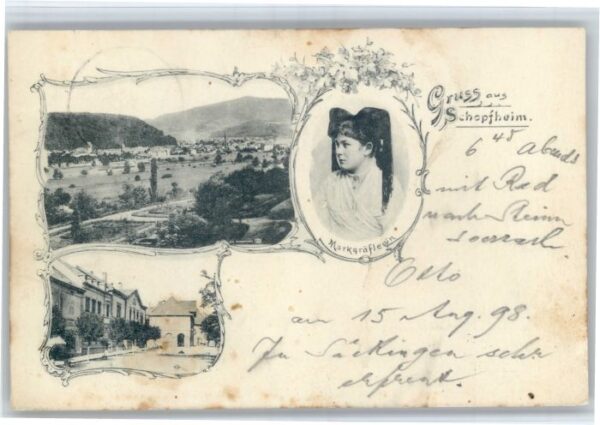 Gruss aus
Schopfheim.
6 45 Abends
mit Rad
nach
Markgräflerin
Otto
am 15 Aug. 98.
In Säckingen sehr
erfreut.